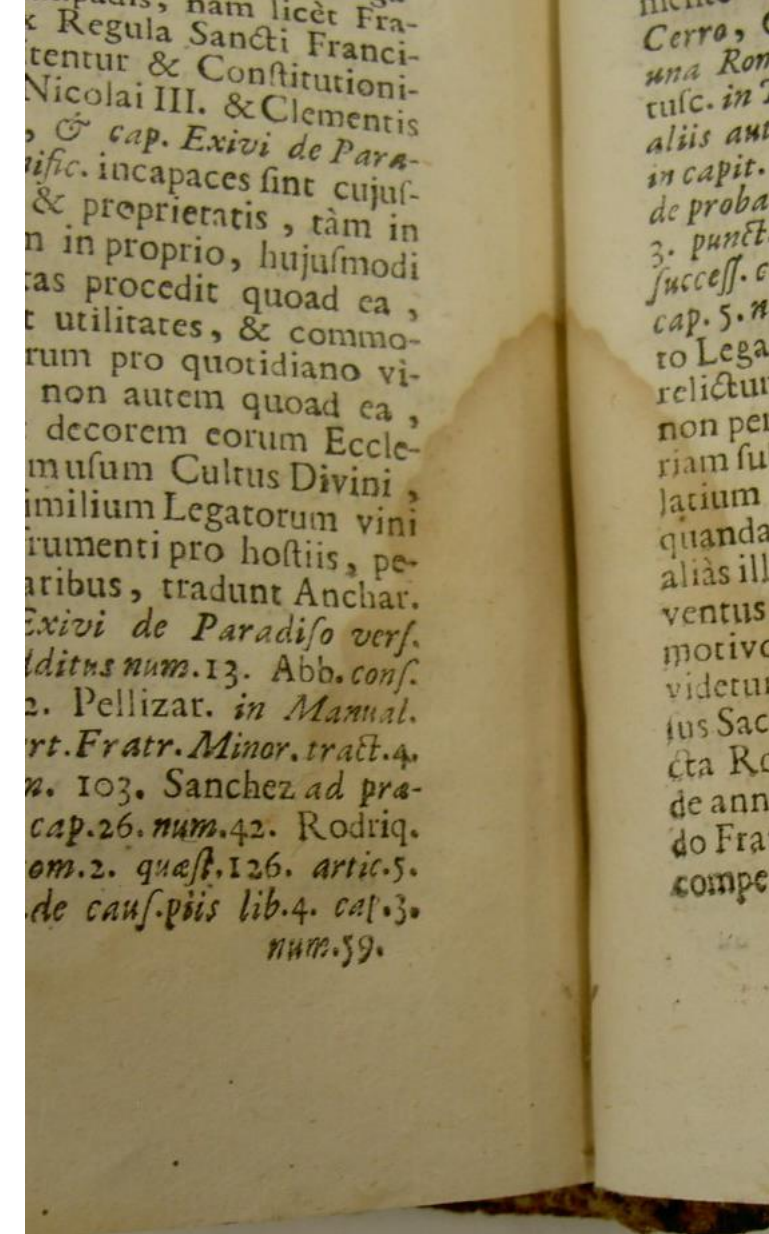 nam licèt Fra-
Regula Sancti Franci-
tentur & Conſtitutioni-
Nicolai III. & Clementis
, & cap. Exivi de Para-
ific. incapaces ſint cujuſ-
& proprietatis , tàm in
n in proprio, hujuſmodi
tas procedit quoad ea ,
t utilitates, & commo-
rum pro quotidiano vi-
non autem quoad ea ,
decorem eorum Eccle-
muſum Cultus Divini ,
imilium Legatorum vini
rumenti pro hoſtiis, pe-
aribus, tradunt Anchar.
Exivi de Paradiſo verſ.
dditus num. 13. Abb. conſ.
2. Pellizar. in Manual.
rt. Fratr. Minor. tract. 4.
n. 103. Sanchez ad præ-
cap. 26. num. 42. Rodriq.
om. 2. quæſt. 126. artic. 5.
de cauſ. piis lib. 4. cap. 3.
num. 59.
Cerro,
una Rom
tuſc. in
aliis aut
in capit.
de proba
3. punct
ſucceſſ. c
cap. 5. n
to Lega
relictum
non per
riam ſu
latium
quanda
aliàs ill
ventus
motivo
videtur
ius Sac
cta Ro
de ann
do Fra
compe